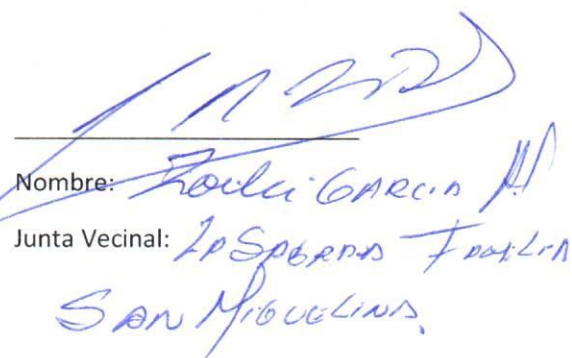 Nombre: Zoila GARCIA M
Junta Vecinal: LA SAGRADA FAMILIA
SAN MIGUELINA.